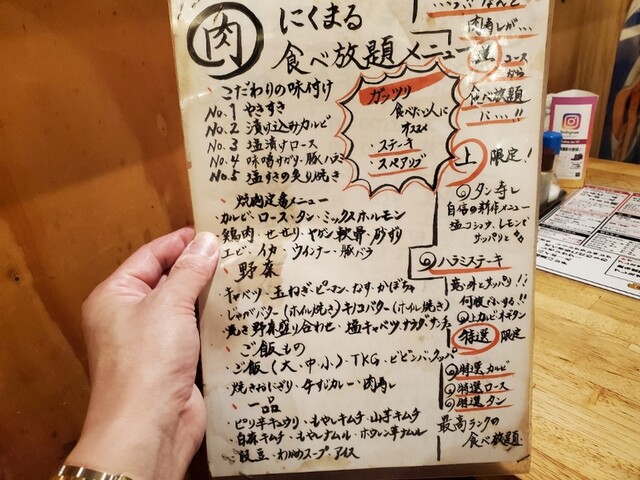 肉
にくまる
食べ放題メニュー
こだわりの味付け
No.1 やきすき
No.2 漬け込みカルビ
No.3 塩漬けロース
No.4 味噌すがり-豚ハラミ
No.5 塩すきの炙り焼き
ガッツリ
食べたい人に
オススメ
・ステーキ
・スペアリブ
焼肉定番メニュー
カルビ・ロース・タン・ミックスホルモン
鶏肉・せせり・ヤゲン軟骨・砂ずり
エビ・イカ・ウインナー・豚バラ
野菜
キャベツ・玉ねぎ・ピーマン・なす・かぼちゃ
・じゃがバター(ホイル焼き)キノコバター(ホイル焼き)
焼き野菜盛り合わせ・塩キャベツ・サラダ・サンチュ
ご飯もの
・ご飯(大・中・小)・TKG・ビビンバ・クッパ
焼きおにぎり・牛すじカレー・肉寿し
一品
・ピリ辛キュウリ・もやしキムチ・山芋キムチ
・白菜キムチ・もやしナムル・ホウレン草ナムル
枝豆・わかめスープ・アイス
なんと
肉寿しが...
コース
から
食べ放題
上 限定!
タン寿し
自信の新作メニュー
塩コショウ、レモンで
サッパリと
ハラミステーキ
意外とサッパリ!!
何枚でもいける!!
上カルビネギタン
特選 限定
特選カルビ
特選ロース
特選タン
最高ランクの
食べ放題
Instagram